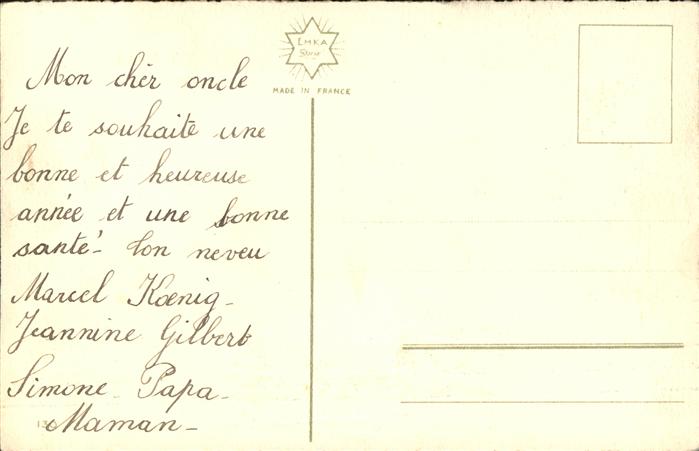 EMKA
MADE IN FRANCE
Mon chèr oncle
Je te souhaite une
bonne et heureuse
année et une bonne
santé - Ton neveu
Marcel Kœnig -
Jeannine Gilbert
Simone - Papa -
Maman -